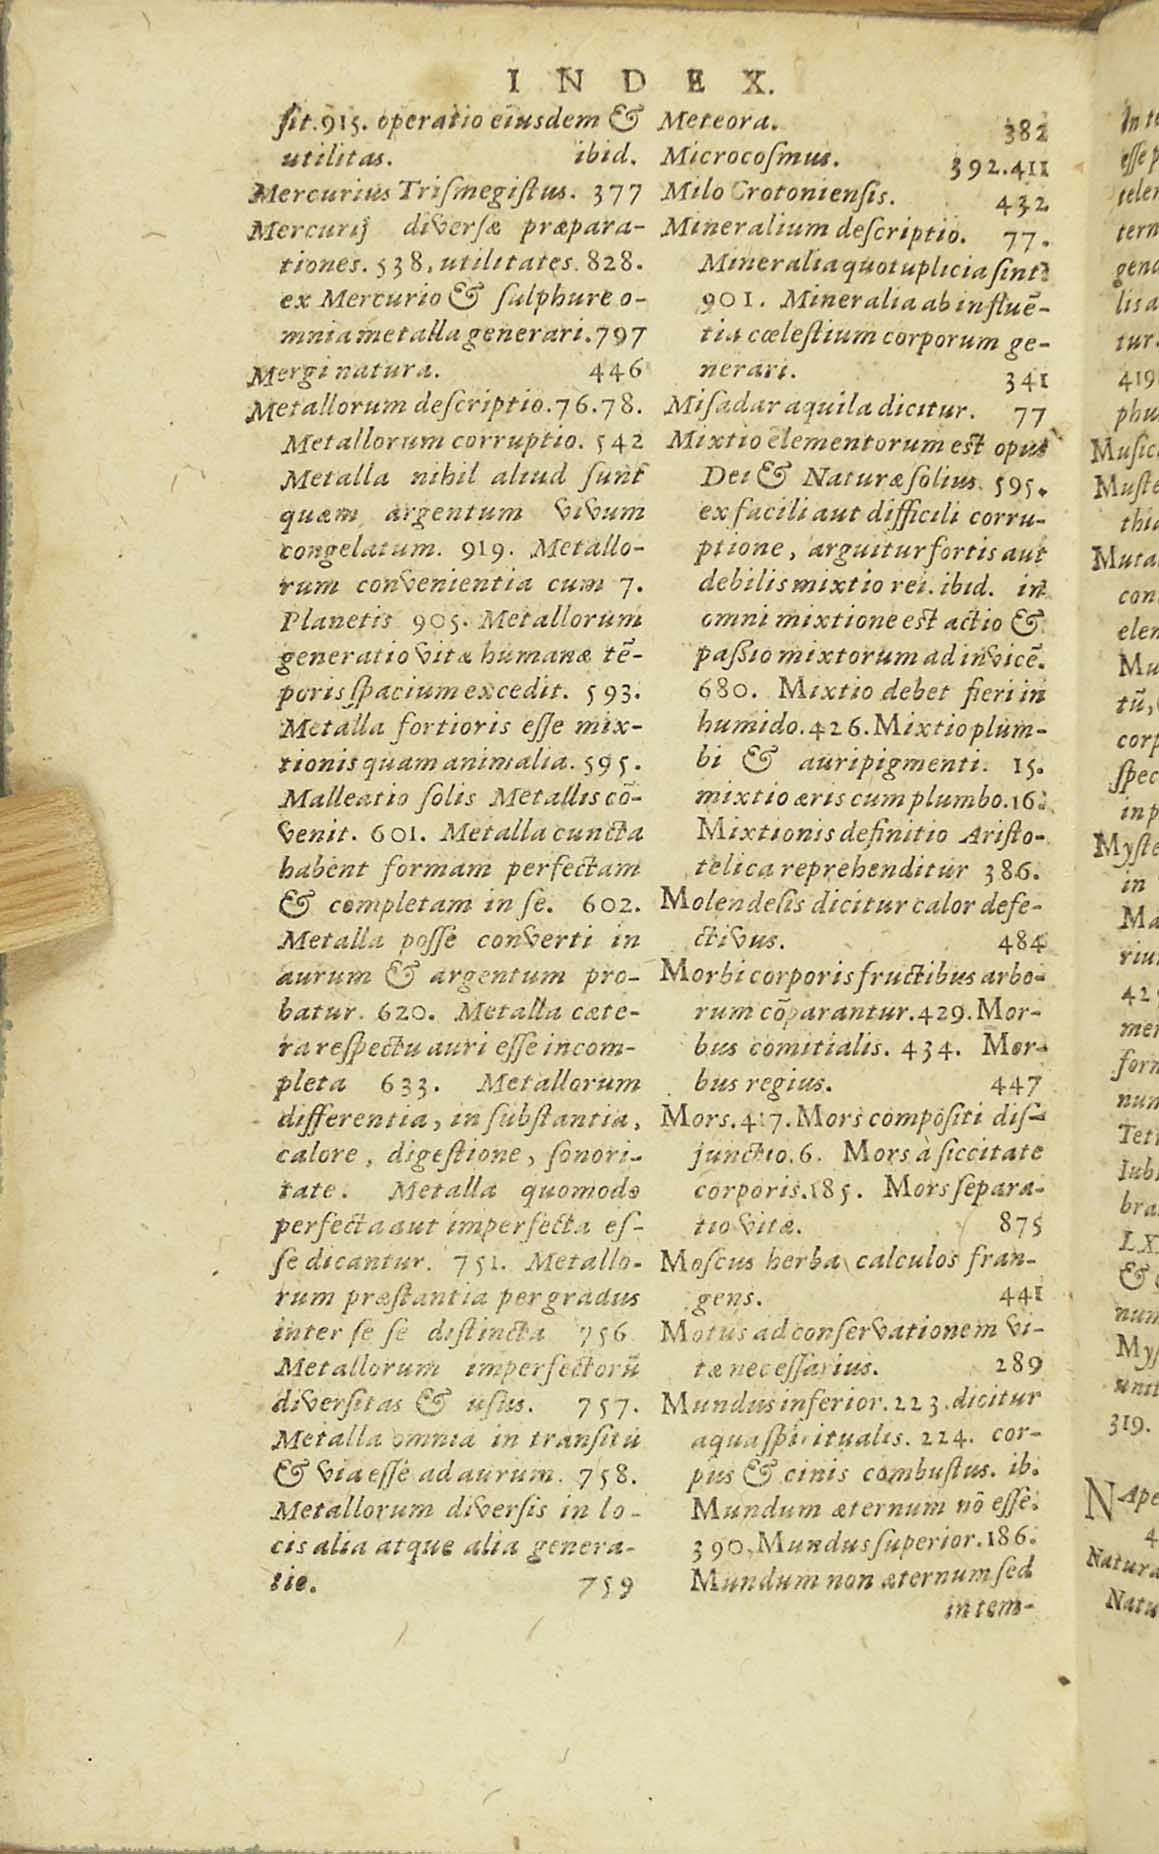 INDEX.
ſit.915. operatio eiusdem &
utilitas. ibid.
Mercurius Triſmegiſtus. 377
Mercurij diverſæ præpara-
tiones. 538, utilitates. 828.
ex Mercurio & ſulphure o-
mnia metalla generari.797
Mergi natura. 446
Metallorum deſcriptio.76.78.
Metallorum corruptio. 542
Metalla nihil aliud ſunt
quæm argentum vivum
congelatum. 919. Metallo-
rum convenientia cum 7.
Planetis 905. Metallorum
generatio vitæ humanæ tē-
poris ſpacium excedit. 593.
Metalla fortioris eſſe mix-
tionis quam animalia. 595.
Malleatio ſolis Metallis cō-
venit. 601. Metalla cuncta
habent formam perfectam
& completam in ſe. 602.
Metalla poſſe converti in
aurum & argentum pro-
batur. 620. Metalla cæte-
ra reſpectu auri eſſe incom-
pleta 633. Metallorum
differentia, in ſubſtantia,
calore, digeſtione, ſonori-
tate. Metalla quomodo
perfecta aut imperfecta eſ-
ſe dicantur. 751. Metallo-
rum præſtantia per gradus
inter ſe ſe diſtincta 756
Metallorum imperfectorū
diverſitas & uſus. 757.
Metalla omnia in tranſitu
& via eſſe ad aurum. 758.
Metallorum diverſis in lo-
cis alia atque alia genera-
tio. 759
Meteora. 382
Microcoſmus. 392.411
Milo Crotonienſis. 432
Mineralium deſcriptio. 77.
Mineralia quotuplicia ſint
901. Mineralia ab influē-
tia cœleſtium corporum ge-
nerari. 341
Miſadar aquila dicitur. 77
Mixtio elementorum est opus
Dei & Naturæ ſolius. 595.
ex facili aut difficili corru-
ptione, arguitur fortis aut
debilis mixtio rei. ibid. in
omni mixtione est actio &
paſſio mixtorum ad invicē.
680. Mixtio debet fieri in
humido.426. Mixtio plum-
bi & auripigmenti. 15.
mixtio æris cum plumbo.16.
Mixtionis definitio Ariſto-
telica reprehenditur 386.
Molendeſis dicitur calor defe-
ctivus. 484
Morbi corporis fructibus arbo-
rum cōparantur.429. Mor-
bus comitialis. 434. Mor-
bus regius. 447
Mors.417. Mors compoſiti diſ-
junctio.6. Mors à ſiccitate
corporis.185. Mors ſepara-
tio vitæ. 875
Moſcus herba calculos fran-
gens. 441
Motus ad conſervationem vi-
tæ neceſſarius. 289
Mundus inferior.223. dicitur
aqua ſpiritualis. 224. cor-
pus & cinis combuſtus. ib.
Mundum æternum nō eſſe.
390. Mundus ſuperior.186.
Mundum non æternum ſed
in tem-
In te
eſſe p
teler
tern
gena
lis a
tur.
419
phu
Muſic
Muſte
thia
Muta
con
elen
Mu
tū,
corp
ſpec
in p
Myſte
in
Ma
riun
42
mer
forn
nun
Tetr
Iub
bra
LX
& 
num
Myſ
unit
319.
NApe
4
Natura
Natu